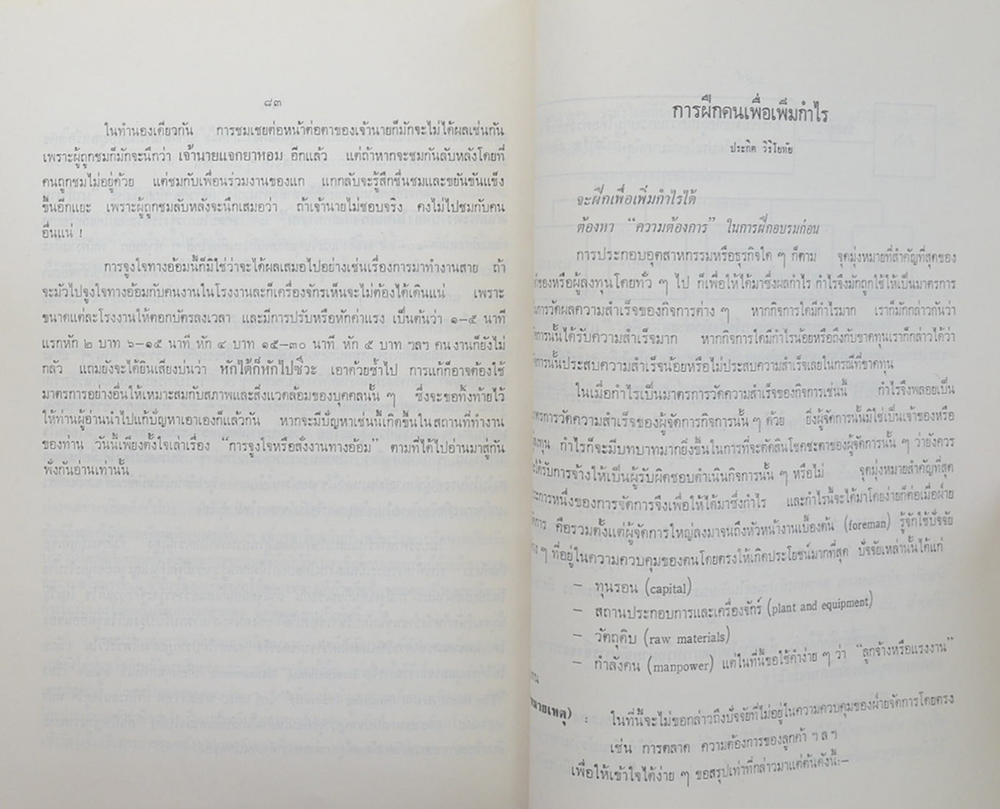 ๘๓
ในทำนองเดียวกัน การชมเชยต่อหน้าต่อตาของเจ้านายก็มักจะไม่ได้ผลเช่นกัน
เพราะผู้ถูกชมก็มักจะนึกว่า เจ้านายแจกยาหอม อีกแล้ว แต่ถ้าหากจะชมกันลับหลังโดยที่
คนถูกชมไม่อยู่ด้วย แต่ชมกับเพื่อนร่วมงานของแก แกกลับจะรู้สึกชื่นชมและขยันขันแข็ง
ขึ้นอีกแยะ เพราะผู้ถูกชมลับหลังจะนึกเสมอว่า ถ้าเจ้านายไม่ชอบจริง คงไม่ไปชมกับคน
อื่นแน่ !
การจูงใจทางอ้อมนี้ก็มิใช่ว่าจะได้ผลเสมอไปอย่างเช่นเรื่องการมาทำงานสาย ถ้า
จะมัวไปจูงใจทางอ้อมกับคนงานในโรงงานละก็เครื่องจักรเห็นจะไม่ต้องได้เดินแน่ เพราะ
ขนาดแต่ละโรงงานให้ตอกบัตรลงเวลา และมีการปรับหรือหักค่าแรง เป็นต้นว่า ๑–๕ นาที
แรกหัก ๒ บาท ๖–๑๕ นาที หัก ๔ บาท ๑๕–๓๐ นาที หัก ๕ บาท ฯลฯ คนงานก็ยังไม่
กลัว แถมยังจะได้ยินเสียงบ่นว่า หักได้ก็หักไปซิวะ เอาด้วยซ้ำไป การแก้ก็อาจต้องใช้
มาตรการอย่างอื่นให้เหมาะสมกับสภาพและสิ่งแวดล้อมของบุคคลนั้น ๆ ซึ่งจะขอทิ้งท้ายไว้
ให้ท่านผู้อ่านนำไปแก้บัญหาเอาเองก็แล้วกัน หากจะมีบัญหาเช่นนี้เกิดขึ้นในสถานที่ทำงาน
ของท่าน วันนี้เพียงตั้งใจเล่าเรื่อง “การจูงใจหรือสั่งงานทางอ้อม” ตามที่ได้ไปอ่านมาสู่กัน
ฟังกันอ่านเท่านั้น
การฝึกคนเพื่อเพิ่มกำไร
ประกิต วิริโยทัย
จะฝึกเพื่อเพิ่มกำไรได้
ต้องหา “ความต้องการ” ในการฝึกอบรมก่อน
การประกอบอุตสาหกรรมหรือธุรกิจใด ๆ ก็ตาม จุดมุ่งหมายที่สำคัญที่สุดของ
หรือผู้ลงทุนโดยทั่ว ๆ ไป ก็เพื่อให้ได้มาซึ่งผลกำไร กำไรจึงมักถูกใช้ให้เป็นมาตรการ
การวัดผลความสำเร็จของกิจการต่าง ๆ หากกิจการใดมีกำไรมาก เราก็มักกล่าวกันว่า
การนั้นได้รับความสำเร็จมาก หากกิจการใดมีกำไรน้อยหรือถึงกับขาดทุนเราก็กล่าวได้ว่า
การนั้นประสบความสำเร็จน้อยหรือไม่ประสบความสำเร็จเลยในกรณีที่ขาดทุน
ในเมื่อกำไรเป็นมาตรการวัดความสำเร็จของกิจการเช่นนี้ กำไรจึงพลอยเป็น
ตรการวัดความสำเร็จของผู้จัดการกิจการนั้น ๆ ด้วย ยิ่งผู้จัดการนั้นมิใช่เป็นเจ้าของหรือ
ทุน กำไรก็จะมีบทบาทมากยิ่งขึ้นในการที่จะตัดสินโชคชะตาของผู้จัดการนั้น ๆ ว่ายังควร
ได้รับการจ้างให้เป็นผู้รับผิดชอบดำเนินกิจการนั้น ๆ หรือไม่ จุดมุ่งหมายสำคัญที่สุด
ประการหนึ่งของการจัดการจึงเพื่อให้ได้มาซึ่งกำไร และกำไรนี้จะได้มาโดยง่ายก็ต่อเมื่อฝ่าย
การ คือรวมตั้งแต่ผู้จัดการใหญ่ลงมาจนถึงหัวหน้างานเบื้องต้น (foreman) รู้จักใช้ปัจจัย
ๆ ที่อยู่ในความควบคุมของตนโดยตรงให้เกิดประโยชน์มากที่สุด ปัจจัยเหล่านั้นได้แก่
– ทุนรอน (capital)
– สถานประกอบการและเครื่องจักร์ (plant and equipment)
– วัตถุดิบ (raw materials)
– กำลังคน (manpower) แต่ในที่นี้ขอใช้คำง่าย ๆ ว่า “ลูกจ้างหรือแรงงาน”
มายเหตุ) : ในที่นี้จะไม่ขอกล่าวถึงปัจจัยที่ไม่อยู่ในความควบคุมของฝ่ายจัดการโดยตรง
เช่น การตลาด ความต้องการของลูกค้า ฯลฯ
เพื่อให้เข้าใจได้ง่าย ๆ ขอสรุปเท่าที่กล่าวมาแต่ต้นดังนี้:–